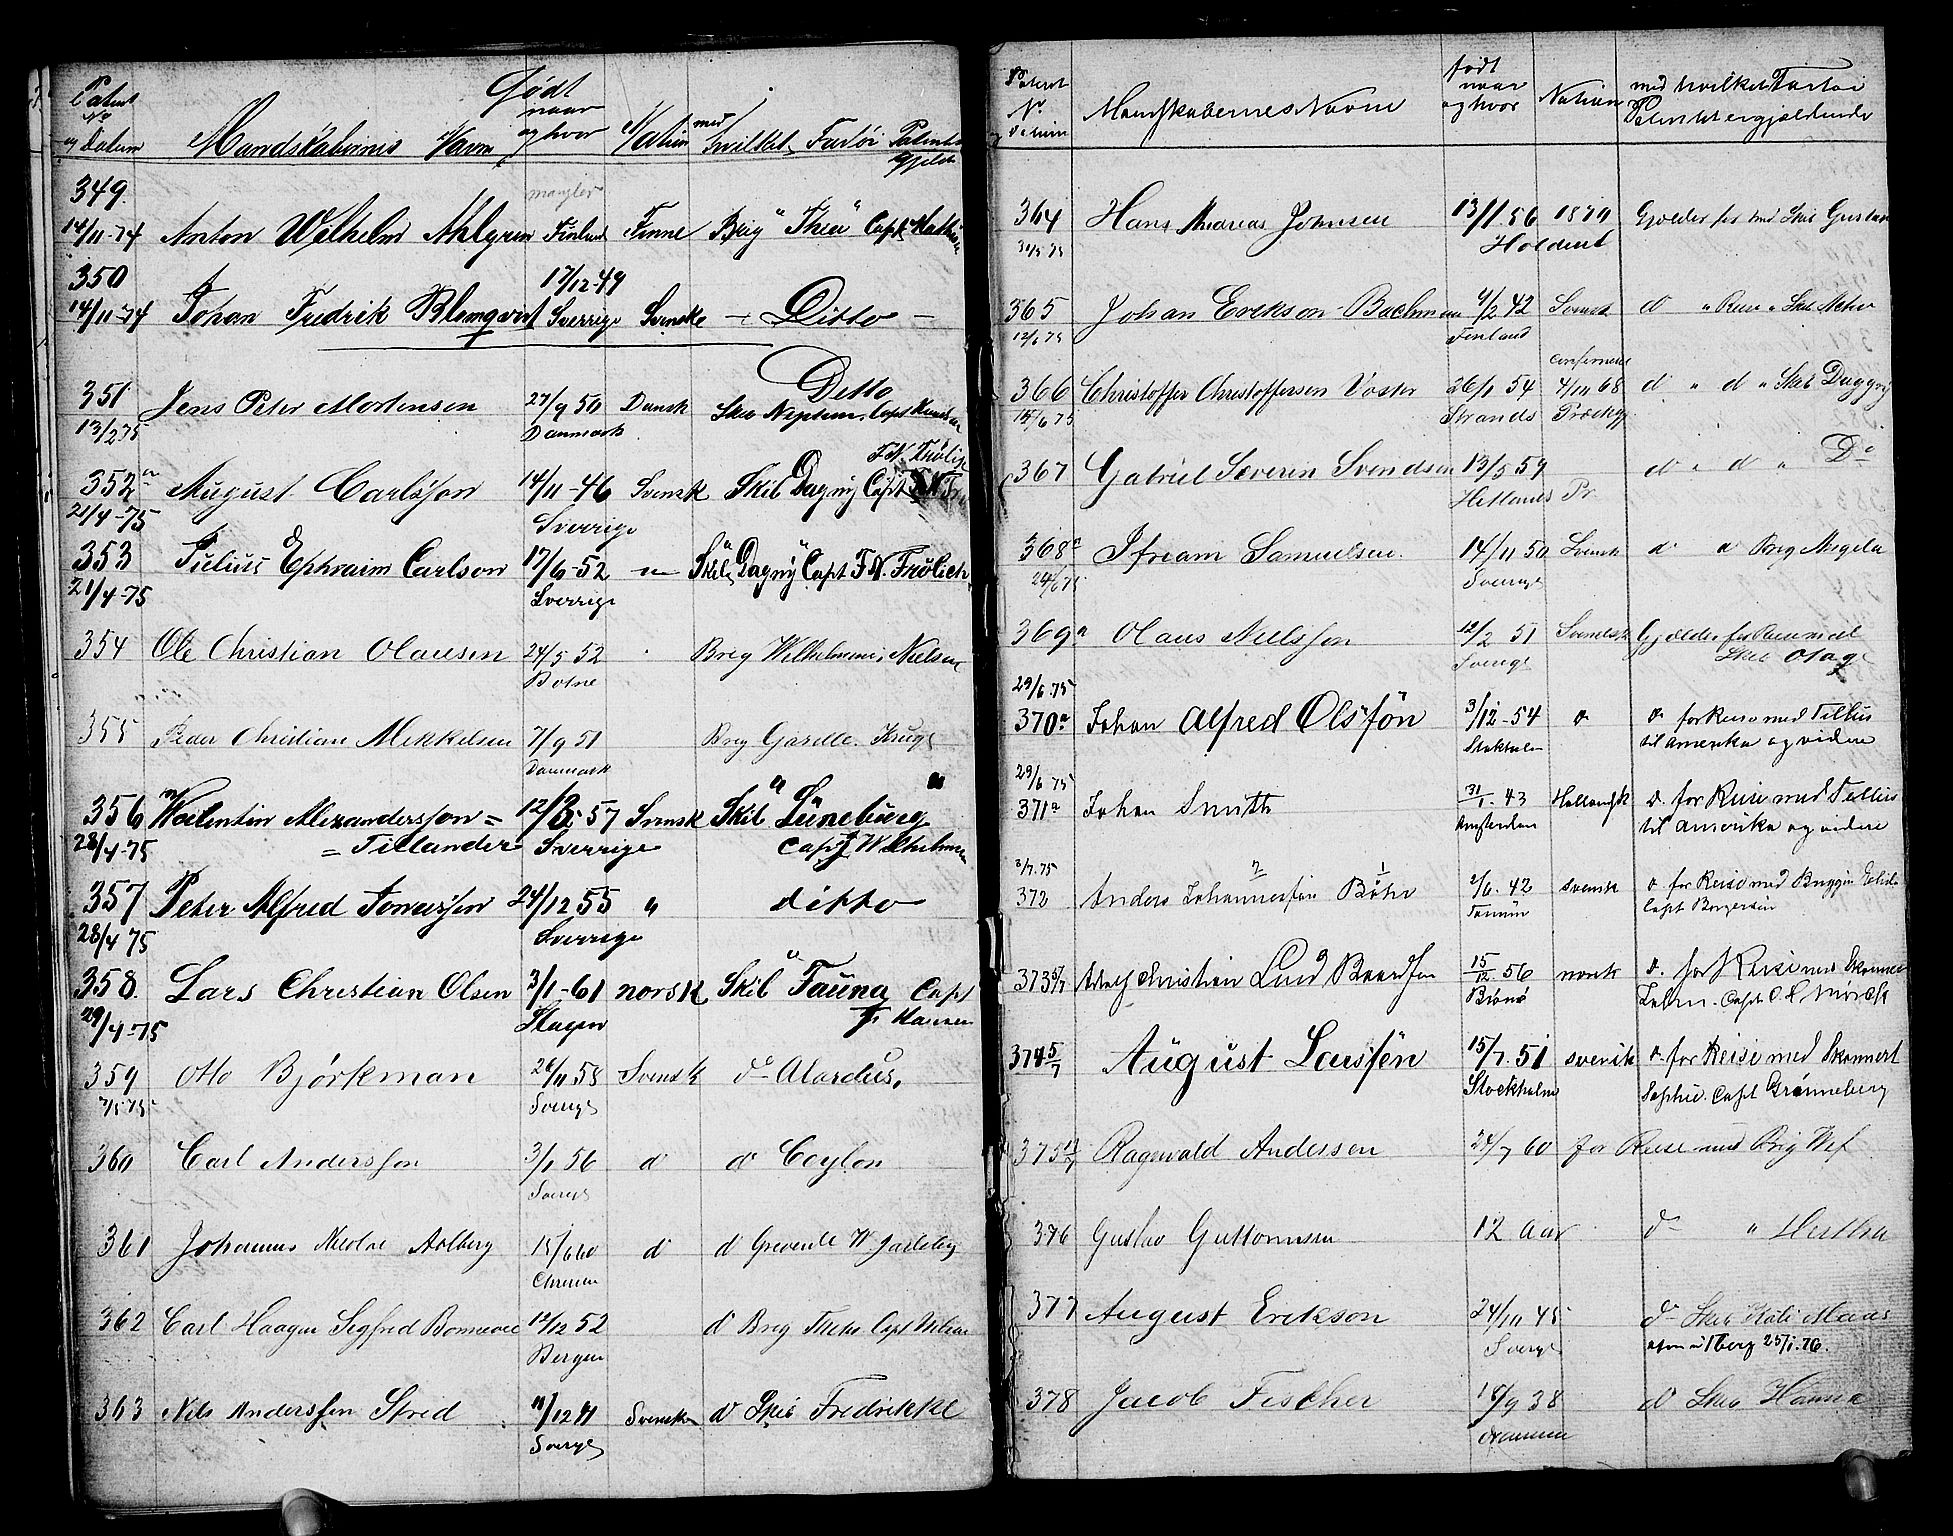 Patent No og Datum Mandskabernes Navne Født naar og hvor Nation med hvilket Fartøi Patentet gjelder
349. mangler
14/11-74 Anton Wilhelm Ahlgren Finland Finne Brig "Thea" Capt
350 17/12-49
14/11-74 Johan Fredrik Blomqvist Sverrige Svenske — Ditto —
351 Jens Peter Mortensen 27/9 50 Dansk Ditto
13/2 75 Danmark Skib Neptun, Capt Knudsen
F.N. Frölich
352 a August Carlsson 14/11-46 Svensk Skib Dagny Capt
21/4-75 Sverrige
353 Julius Ephraim Carlson 17/6-52 " Skib "Dagny" Capt F.N. Frölich
21/4-75 Sverrige
354 Ole Christian Olausen 24/5 52 Brig Wilhelmine, Nielsen
Botne
355 Peder Christian Mikkelsen 7/9 51 Brig Gazelle
Danmark
356 Walentin Alexandersson = 12/3-57 Svensk Skib "Lüneburg"
28/4-75 = Tillander Sverrige Capt J Wilhelmsen
357 Peter Alfred Jonasson 24/12 55 " ditto
28/4 75 Sverrige
358. Lars Christian Olsen 3/1-61 norsk Skib "Fauna" Capt
29/4-75 Slagen Hansen
359 Otto Bjørkman 26/11 55 Svensk d Alardus.
7/5 75 Sverige
360 Carl Andersson 3/1 56 d d Ceylon
Sverige
361 Johannes Nicolai Aolberg 15/6 60 d d Grevinde W Jarlsberg
362 Carl Haagen Segfred Bonnevie 12/12 52 d Brig Theta Capt Nilsen
Bergen
363 Nils Anderssen Strid 11/12 41 Svenske d Skib Fredrikke
Sverige
Patent No og Datum Mandskabernes Navne født naar og hvor Nation med hvilket Fartøi Patentet er gjældende
364 Hans Andreas Johnsen 13/1 56 1874 Gjælder for med Skib Gustav
31/5 75
365 Johan Erikson Bachman 4/2 42 Svensk d " Reise " Skib
12/6 75 Finland
confirmeret
366 Christoffer Christoffersen Voster 26/1 54 4/10 68 d " d " Skib Dagny
15/6 75 Strands Præstgj.
367 Gabriel Severin Svendsen 13/5 59 d " d " Do
Hetlands Pr
368 a Ifream Samuelsen. 14/11 50 Svensk d d Brig
24/6 75 Sverige
369 a Olaus Nielsson 12/2 51 Svensk Gjælder for Reise med
Sverige Skib Otago
29/6.75
370 a Johan Alfred Olssön 3/12-54 d d. for Reise med Tellus
Stokholm til Amerika og videre
29/6 75
371 a Johan Smith 31/1. 43 Hollandsk d. for Reise med Tellus
Amsterdam til Amerika og videre
3/7.75
372 Anders Johannessen Böhr 2/6. 42 svensk d. for Reise med Briggen
Tanum Capt Borgersen
373 5/7 Adolf Christian Lund Baardsen 15/12 56 norsk d. for Reise med Skonnert
Capt. C. L. Mörck
374 5/7 August Larssön 15/7. 51 svensk d. for Reise med Skonnert
Stockholm Sophie. Capt Grønneberg
375 Ragnvald Andersen 24/7 60 for Reise med Brig Ref
376 Gustav Guttormsen 12 Aar d " Hertha
377 August Erikson 24/10 45 d Skib
Sverige 25/1.76.
378 Jacob Fischer 18/9 38 d Skib Hanna
Drammen